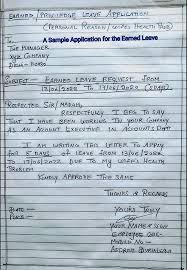 EARNED / PRIVILEGE LEAVE APPLICATION
(PERSONAL REASON / WIFE'S HEALTH ISSUE)
A Sample Application for the Earned Leave
THE MANAGER
XYZ COMPANY
DELHI-
SUBJECT: EARNED LEAVE REQUEST FROM
13/04/2022 TO 17/04/2022 (5 DAYS)
RESPECTED SIR/MADAM,
RESPECTFULLY I BEG TO SAY
THAT I HAVE BEEN WORKING IN YOUR COMPANY
AS AN ACCOUNT EXECUTIVE IN ACCOUNTS DEPTT
I AM WRITING THIS LETTER TO APPLY
FOR 5 DAYS OF LEAVE FROM 13/04/2022
TO 17/04/2022 DUE TO MY WIFE'S HEALTH
PROBLEM
KINDLY APPROVE THE SAME
THANKS & REGARDS
DATE
PLACE
YOURS TRULY
YOUR NAME & SIGN
EMPLOYEE CODE-
MOBILE NO-
ADDRESS